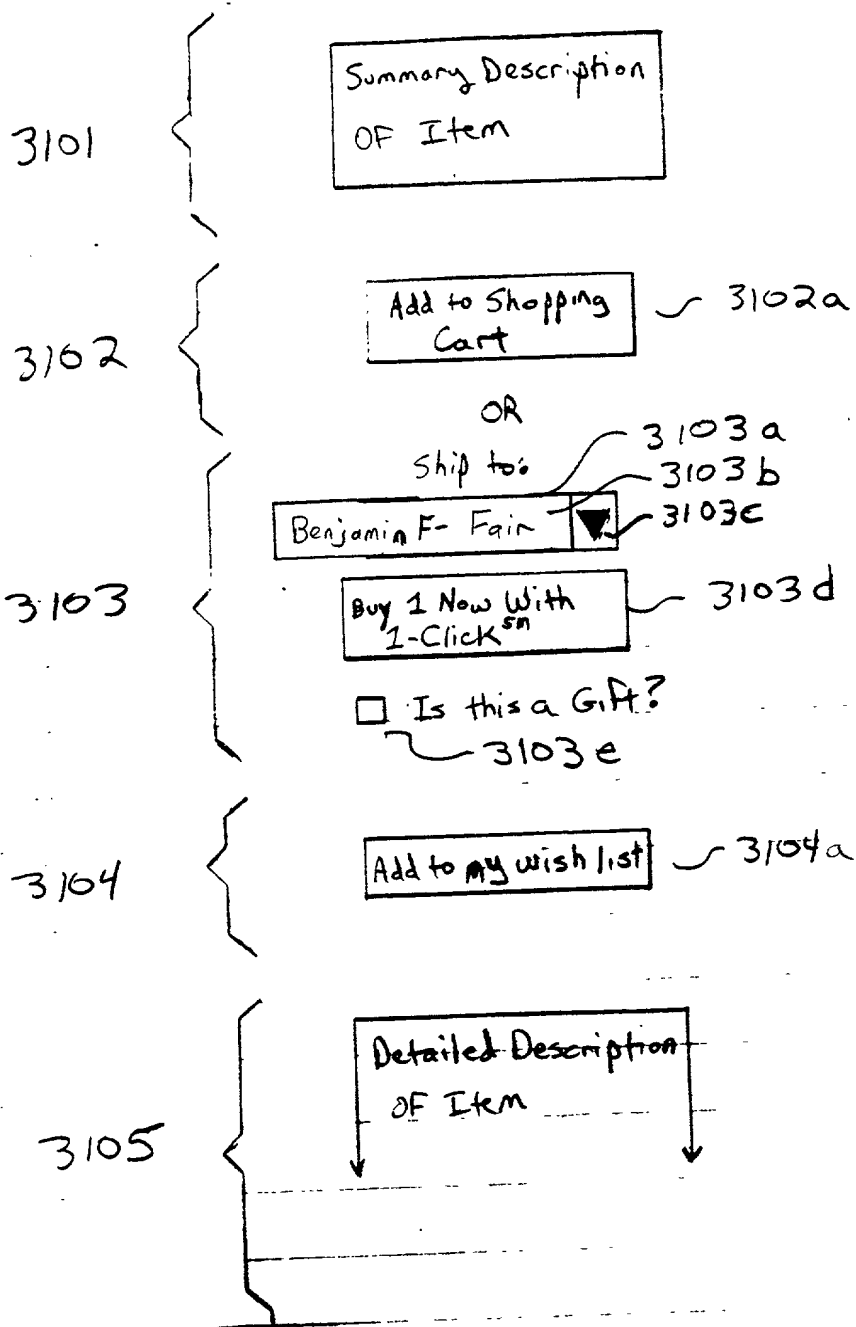 3101
Summary Description
OF Item
3102
Add to Shopping
Cart
3102a
OR
Ship to:
3103a
3103b
3103c
Benjamin F- Fair
3103
Buy 1 Now With
1-Click sm
3103d
Is this a Gift?
3103e
3104
Add to my wish list
3104a
3105
Detailed Description
OF Item